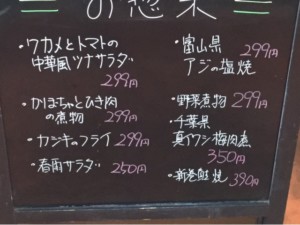 お惣菜
・ワカメとトマトの
中華風ツナサラダ
299円
・かぼちゃとひき肉
の煮物 299円
・カジキのフライ 299円
・春雨サラダ 250円
・富山県 299円
アジの塩焼
・野菜煮物 299円
・千葉県
真イワシ梅肉煮
350円
・新巻鮭焼 390円